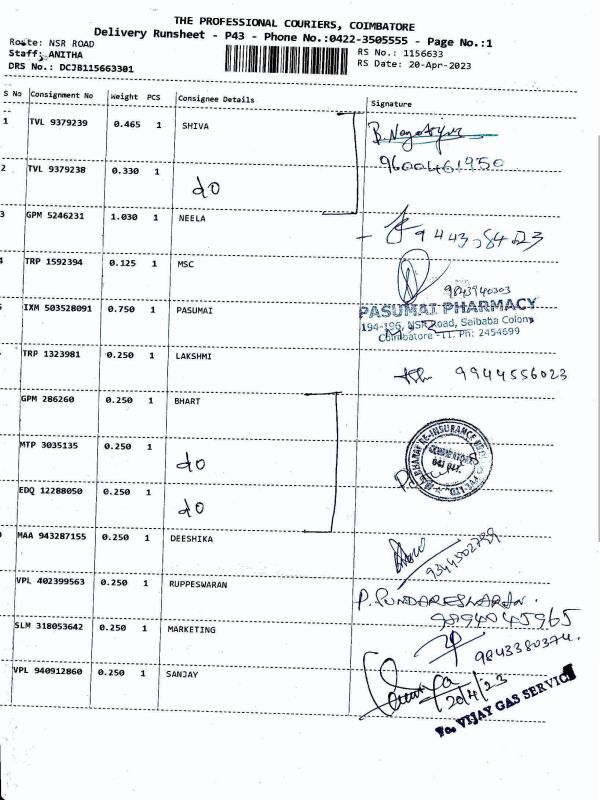 THE PROFESSIONAL COURIERS, COIMBATORE
Delivery Runsheet - P43 - Phone No.:0422-3505555 - Page No.:1
Route: NSR ROAD
Staff: ANITHA
DRS No.: DCJB115663301
RS No.: 1156633
RS Date: 20-Apr-2023
S No Consignment No Weight PCS Consignee Details Signature
1 TVL 9379239 0.465 1 SHIVA
9600461950
2 TVL 9379238 0.330 1 do
3 GPM 5246231 1.030 1 NEELA
TRP 1592394 0.125 1 MSC 9843940303
IXM 503528091 0.750 1 PASUMAI PASUMAI PHARMACY
194-196, NSR Road, Saibaba Colony
Coimbatore - 11. Ph: 2454699
TRP 1323981 0.250 1 LAKSHMI 9944556023
GPM 286260 0.250 1 BHART
MTP 3035135 0.250 1 do
EDQ 12288050 0.250 1 do
MAA 943287155 0.250 1 DEESHIKA 9344502799
VPL 402399563 0.250 1 RUPPESWARAN P. PUNDARESWARAN.
9894045965
SLM 318053642 0.250 1 MARKETING 9843380374.
VPL 940912860 0.250 1 SANJAY 20/4/23
For VIJAY GAS SERVICE